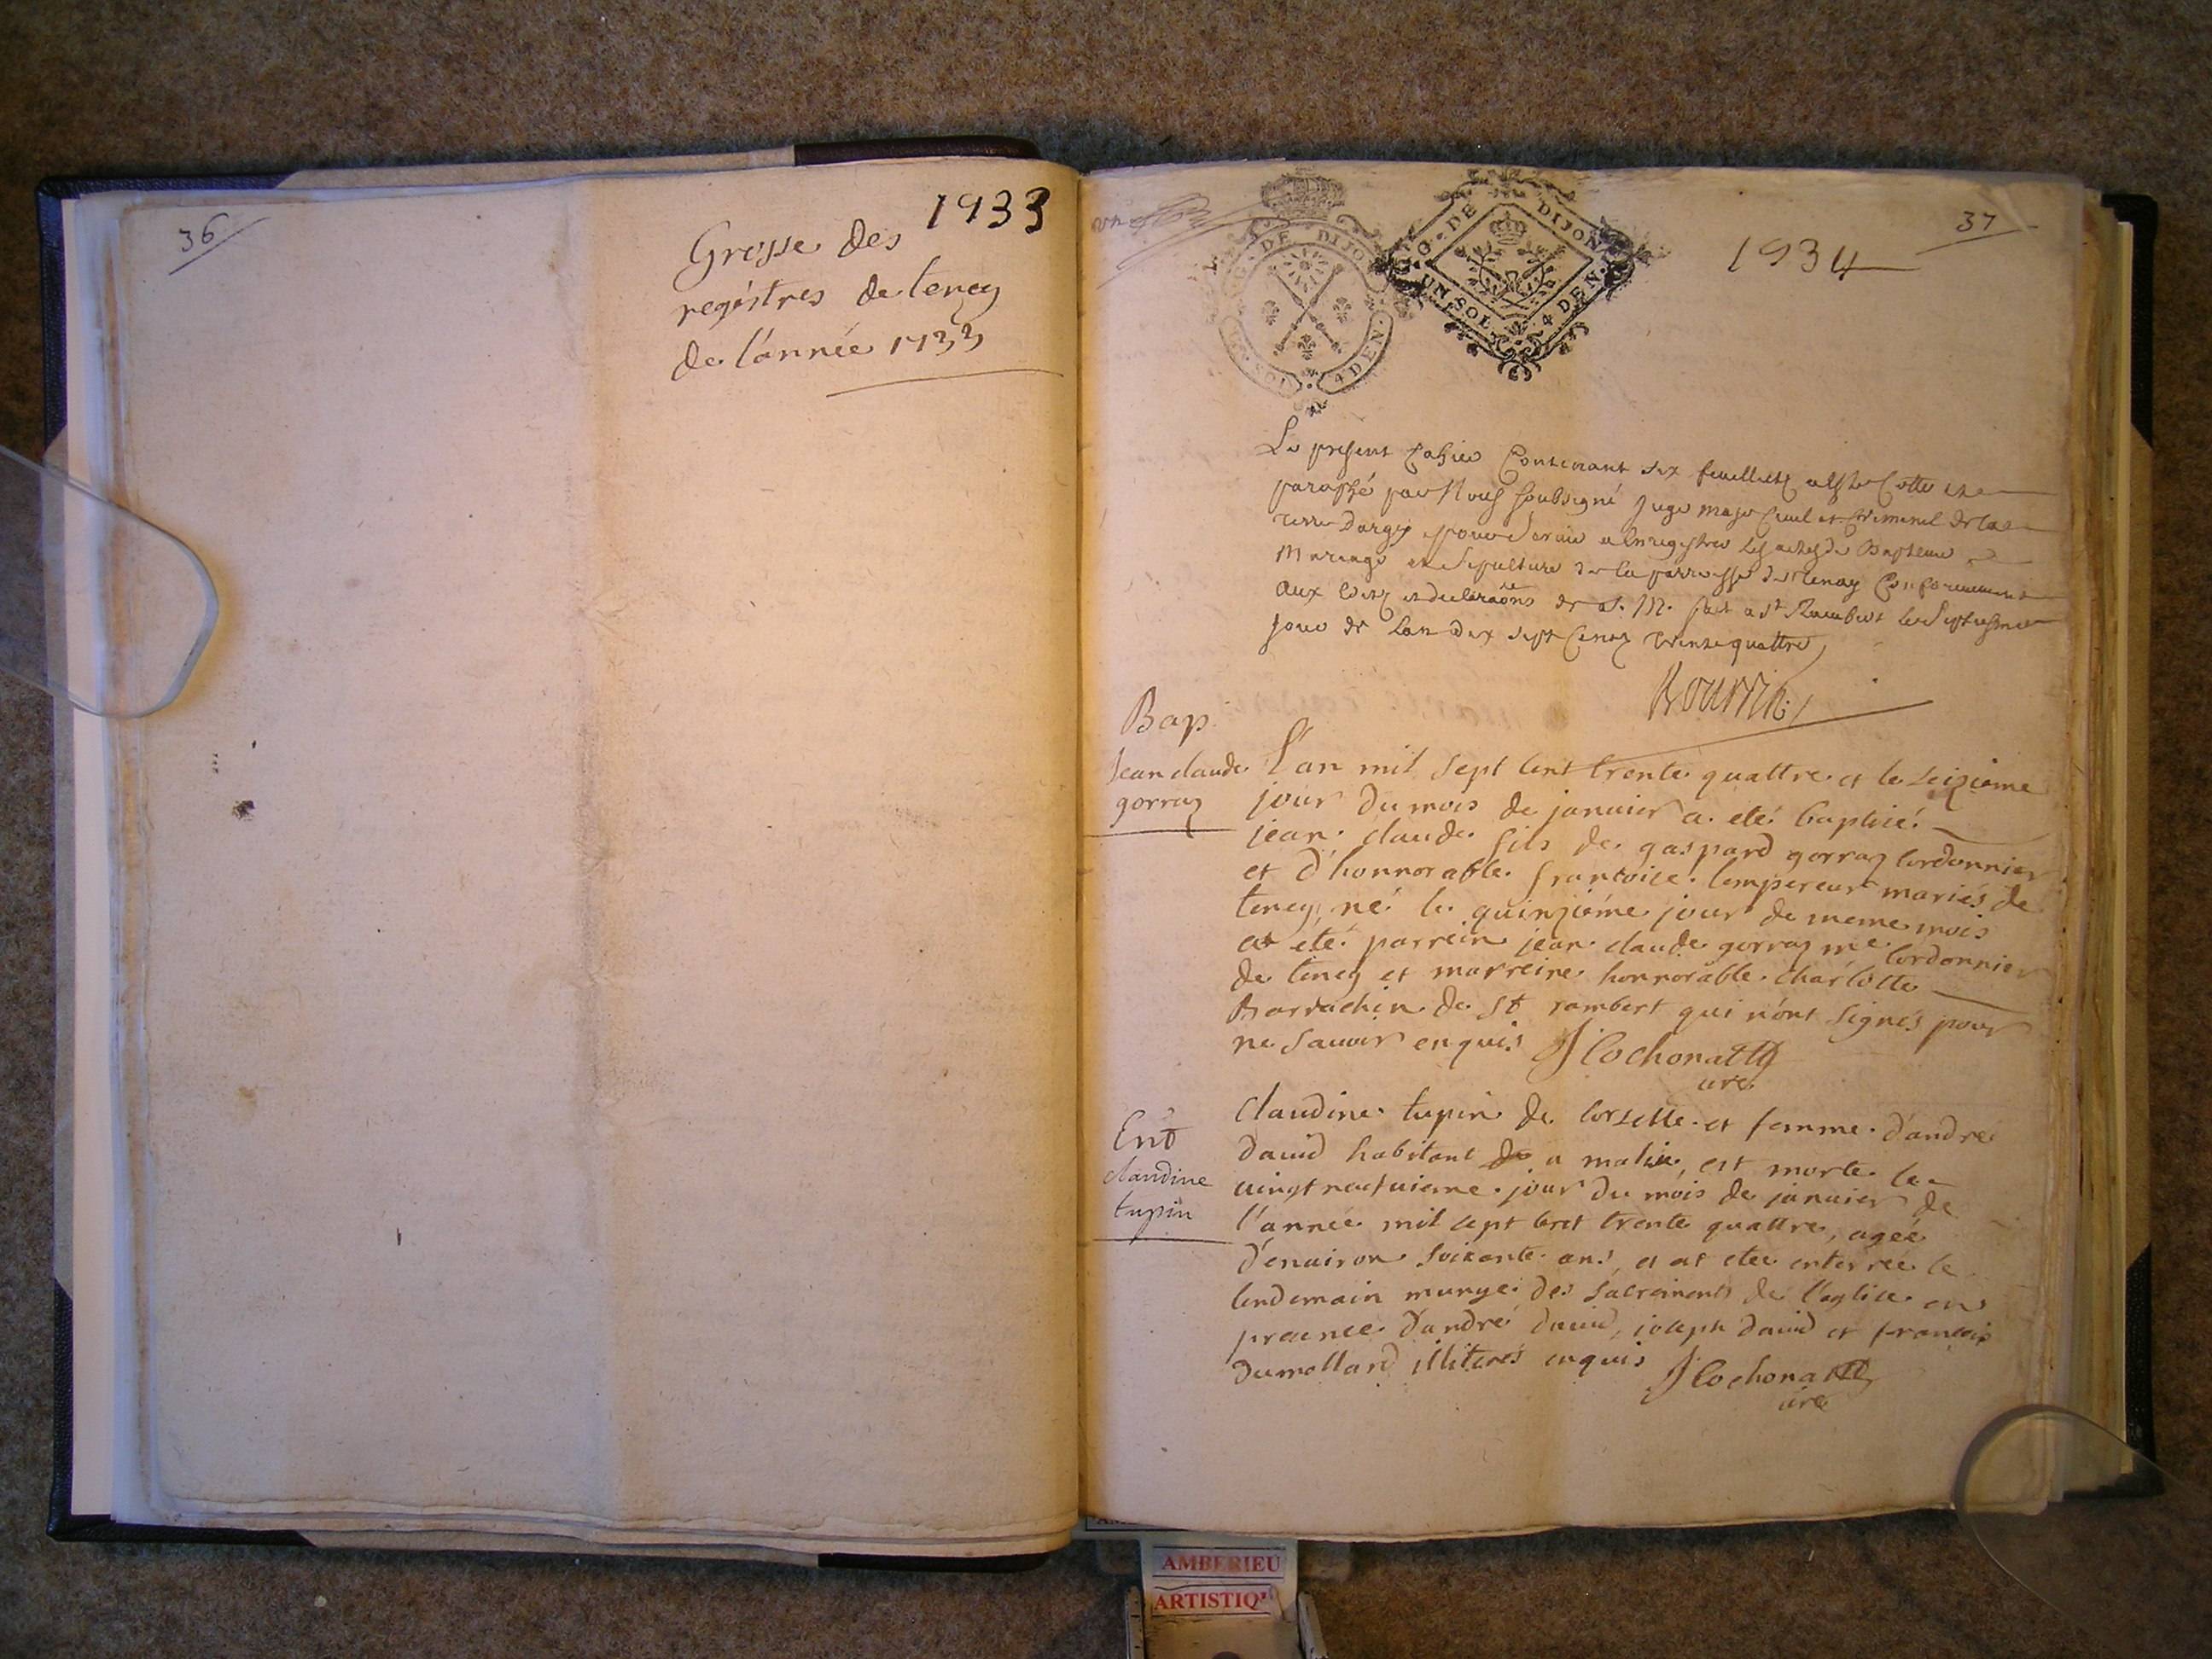 36
1733
Grosse des
registres de teney
de l'année 1733
37
1734
G. DE DIJON
UN SOL. 4 DEN.
G. DE DIJON
SOL 4 DEN.
Le present Cahier Contenant six feuillets a esté Cotté et
paraphé par Nous soubsigné Juge maje Civil et Criminel de la
terre Dargis pour servir a Enregistrer les actes de Baptemes
Mariage et Sepulture de la parroisse de Tenay Conformement
Aux Edits et declaraõns de S. M. fait a st Rambert le Septiesme
jour de Lan dix sept Cents trente quattre
Bap.
Jean claude
gorraz
L'an mil sept cent trente quattre et le seizieme
jour du mois de janvier a eté baptisé
jean claude fils de gaspard gorraz cordonnier
et d'honnorable francoise lempereur mariés de
teney, né le quinzième jour de meme mois
at eté parrein jean claude gorraz me cordonnier
de teney et marreine honnorable charlotte
Barrachin de st rambert qui n'ont signés pour
ne sauoir enquis J Cochonatt
curé
Ent
claudine
tupin
Claudine tupin de corselle et femme d'andré
dauid habitant de a malix, est morte le
uingt neufuieme jour du mois de januier de
l'année mil sept cent trente quattre, ageé
d'enuiron soixante ans, et at eteé enterreé le
lendemain munye des sacrements de l'eglise en
presence d'andré dauid, joseph dauid et françois
dumollard illiterés enquis J Cochonatt
curé
AMBERIEU
ARTISTIQ'